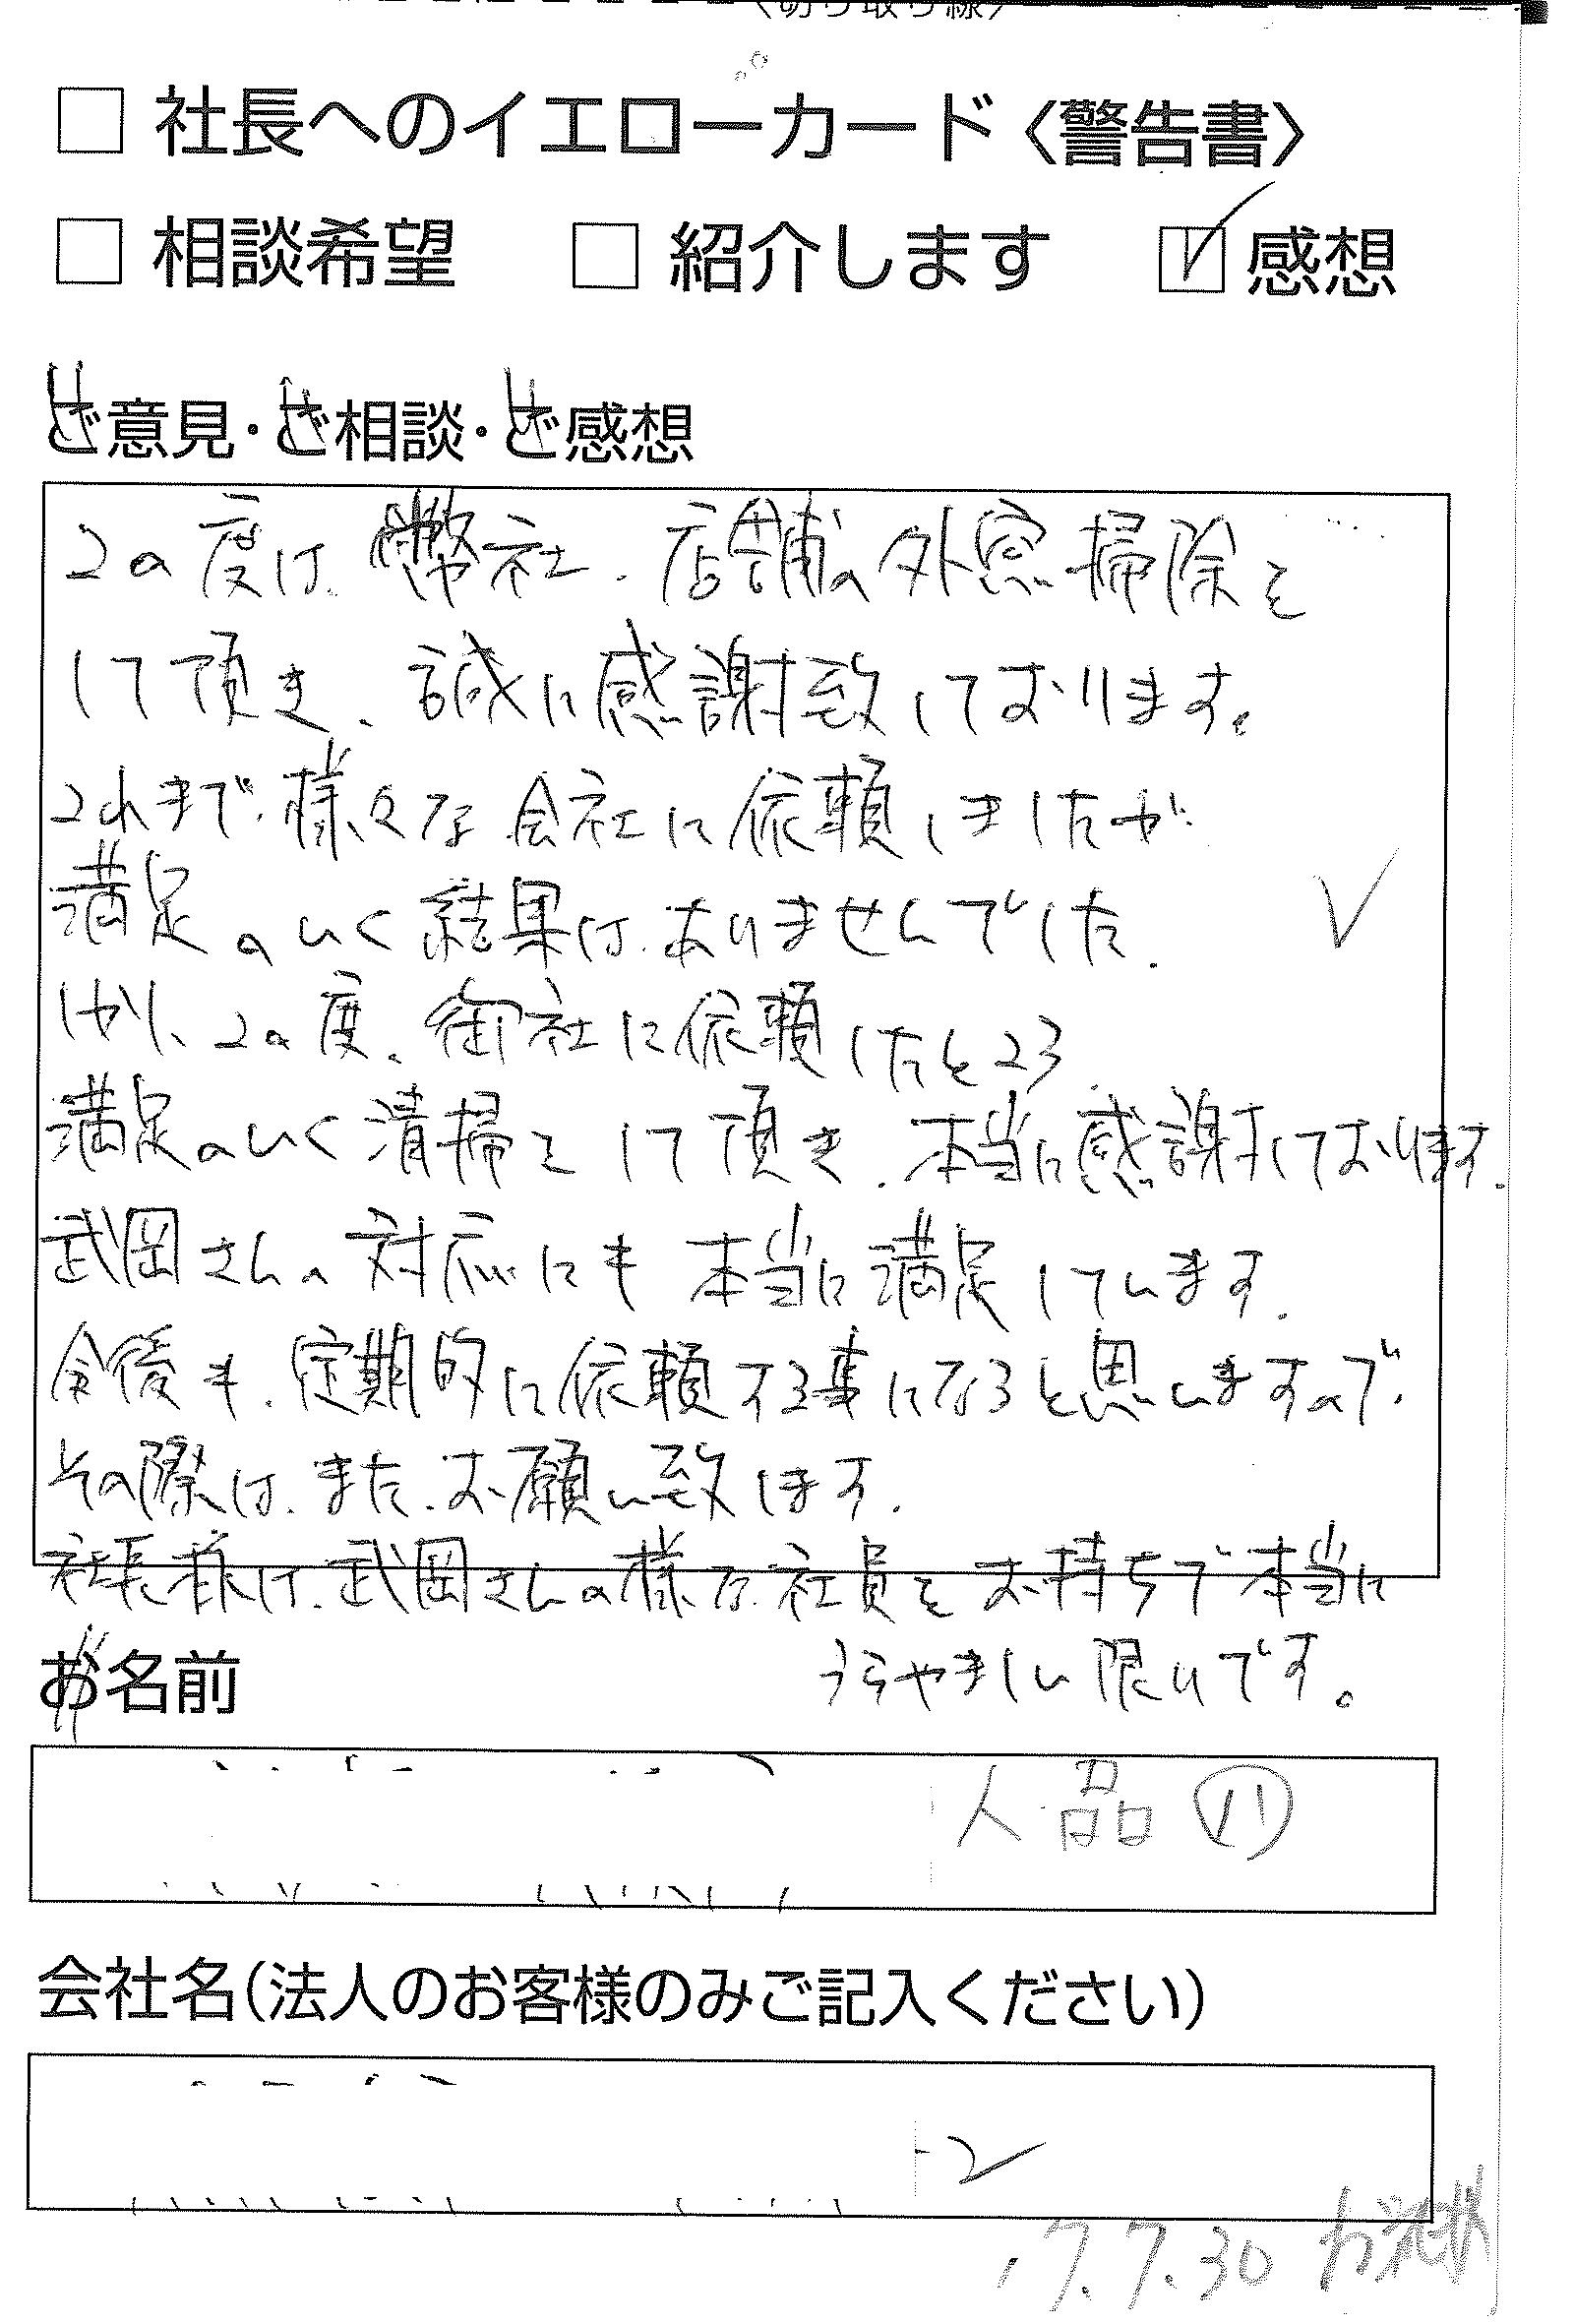 〈切り取り線〉
□ 社長へのイエローカード〈警告書〉
□ 相談希望 □ 紹介します ☑ 感想
ご意見・ご相談・ご感想
この度は、弊社、店舗の外窓掃除を
して頂き、誠に感謝致しております。
これまで、様々な会社に依頼しましたが
満足のいく結果は、ありませんでした。
しかし、この度、御社に依頼したところ
満足のいく清掃をして頂き、本当に感謝しております。
武岡さんの対応にも本当に満足しています。
今後も、定期的に依頼する事になると思いますので、
その際は、また、お願い致します。
社長様は、武岡さんの様な社員をお持ちで本当に
うらやましい限りです。
お名前
人品 ⑪
会社名(法人のお客様のみご記入ください)
17.7.30